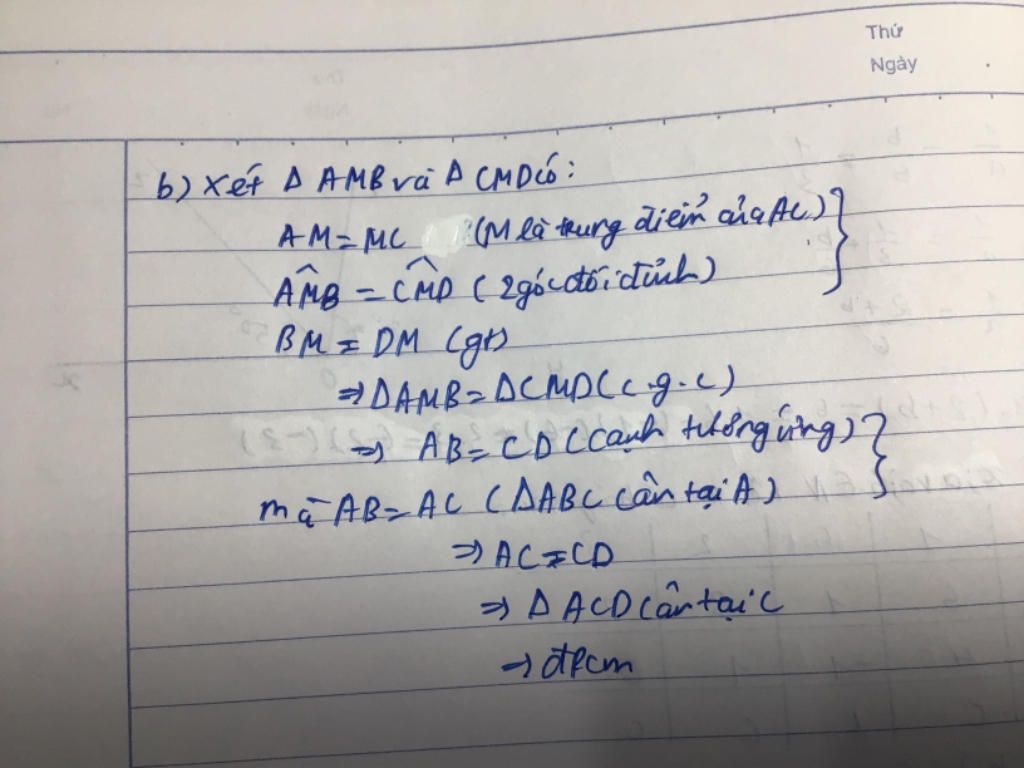 Thứ
Ngày
b) Xét Δ AMB và Δ CMD có:
AM = MC (M là trung điểm của AC)
AM̂B = CM̂D (2 góc đối đỉnh)
BM = DM (gt)
⇒ ΔAMB = ΔCMD (c.g.c)
⇒ AB = CD (cạnh tương ứng)
mà AB = AC (ΔABC cân tại A)
⇒ AC = CD
⇒ Δ ACD cân tại C
⇒ đpcm